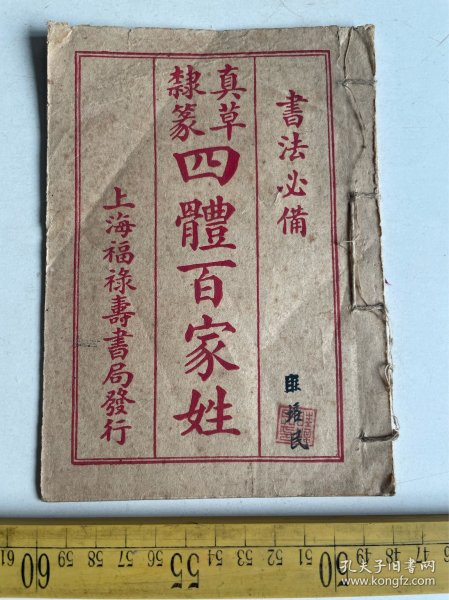 書法必備
真草
隸篆
四體百家姓
上海福祿壽書局發行
民
61 60 59 58 57 56 55 54 53 52 51 50 49 48 47 46 45
孔夫子旧书网
www.kongfz.com